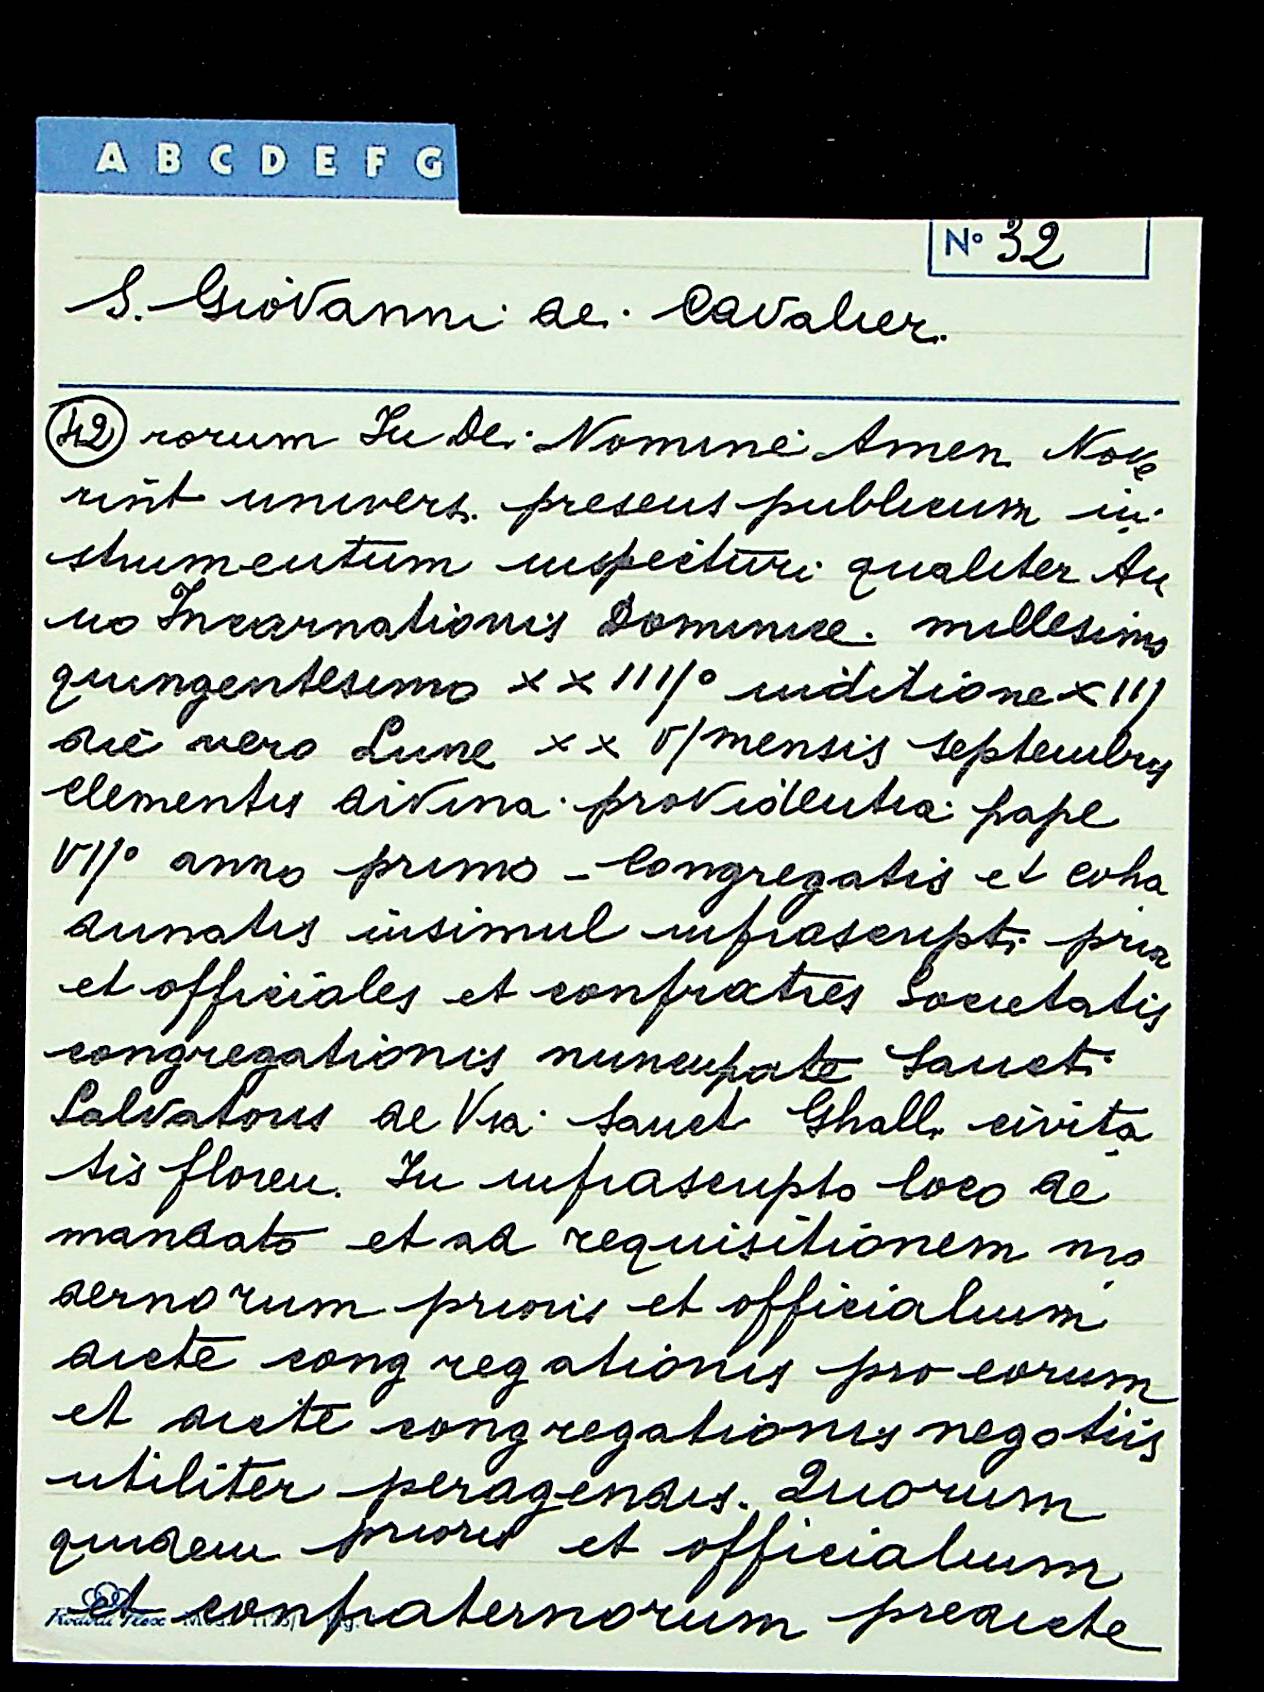 A B C D E F G
N° 32
S. Giovanni dei Cavalier.
42 rorum In Dei Nomine Amen Nove
rint univers. presens publicum in
strumentum inspecturi qualiter An
no Incarnationis Dominice millesimo
quingentesimo XXIIII° inditione XIII
die vero Lune XXVI mensis septembris
clementis divina providentia pape
VII° anno primo - Congregatis et coha
dunatis insimul infrascripti prior
et officiales et confratres Societatis
congregationis nuncupate Sancti
Salvatoris de Via Sanct Ghall. civita
tis floren. In infrascripto loco de
mandato et ad requisitionem mo
dernorum prioris et officialium
dicte congregationis pro eorum
et dicte congregationis negotiis
utiliter peragendis. Quorum
quidem prioris et officialium
et confraternorum predicte